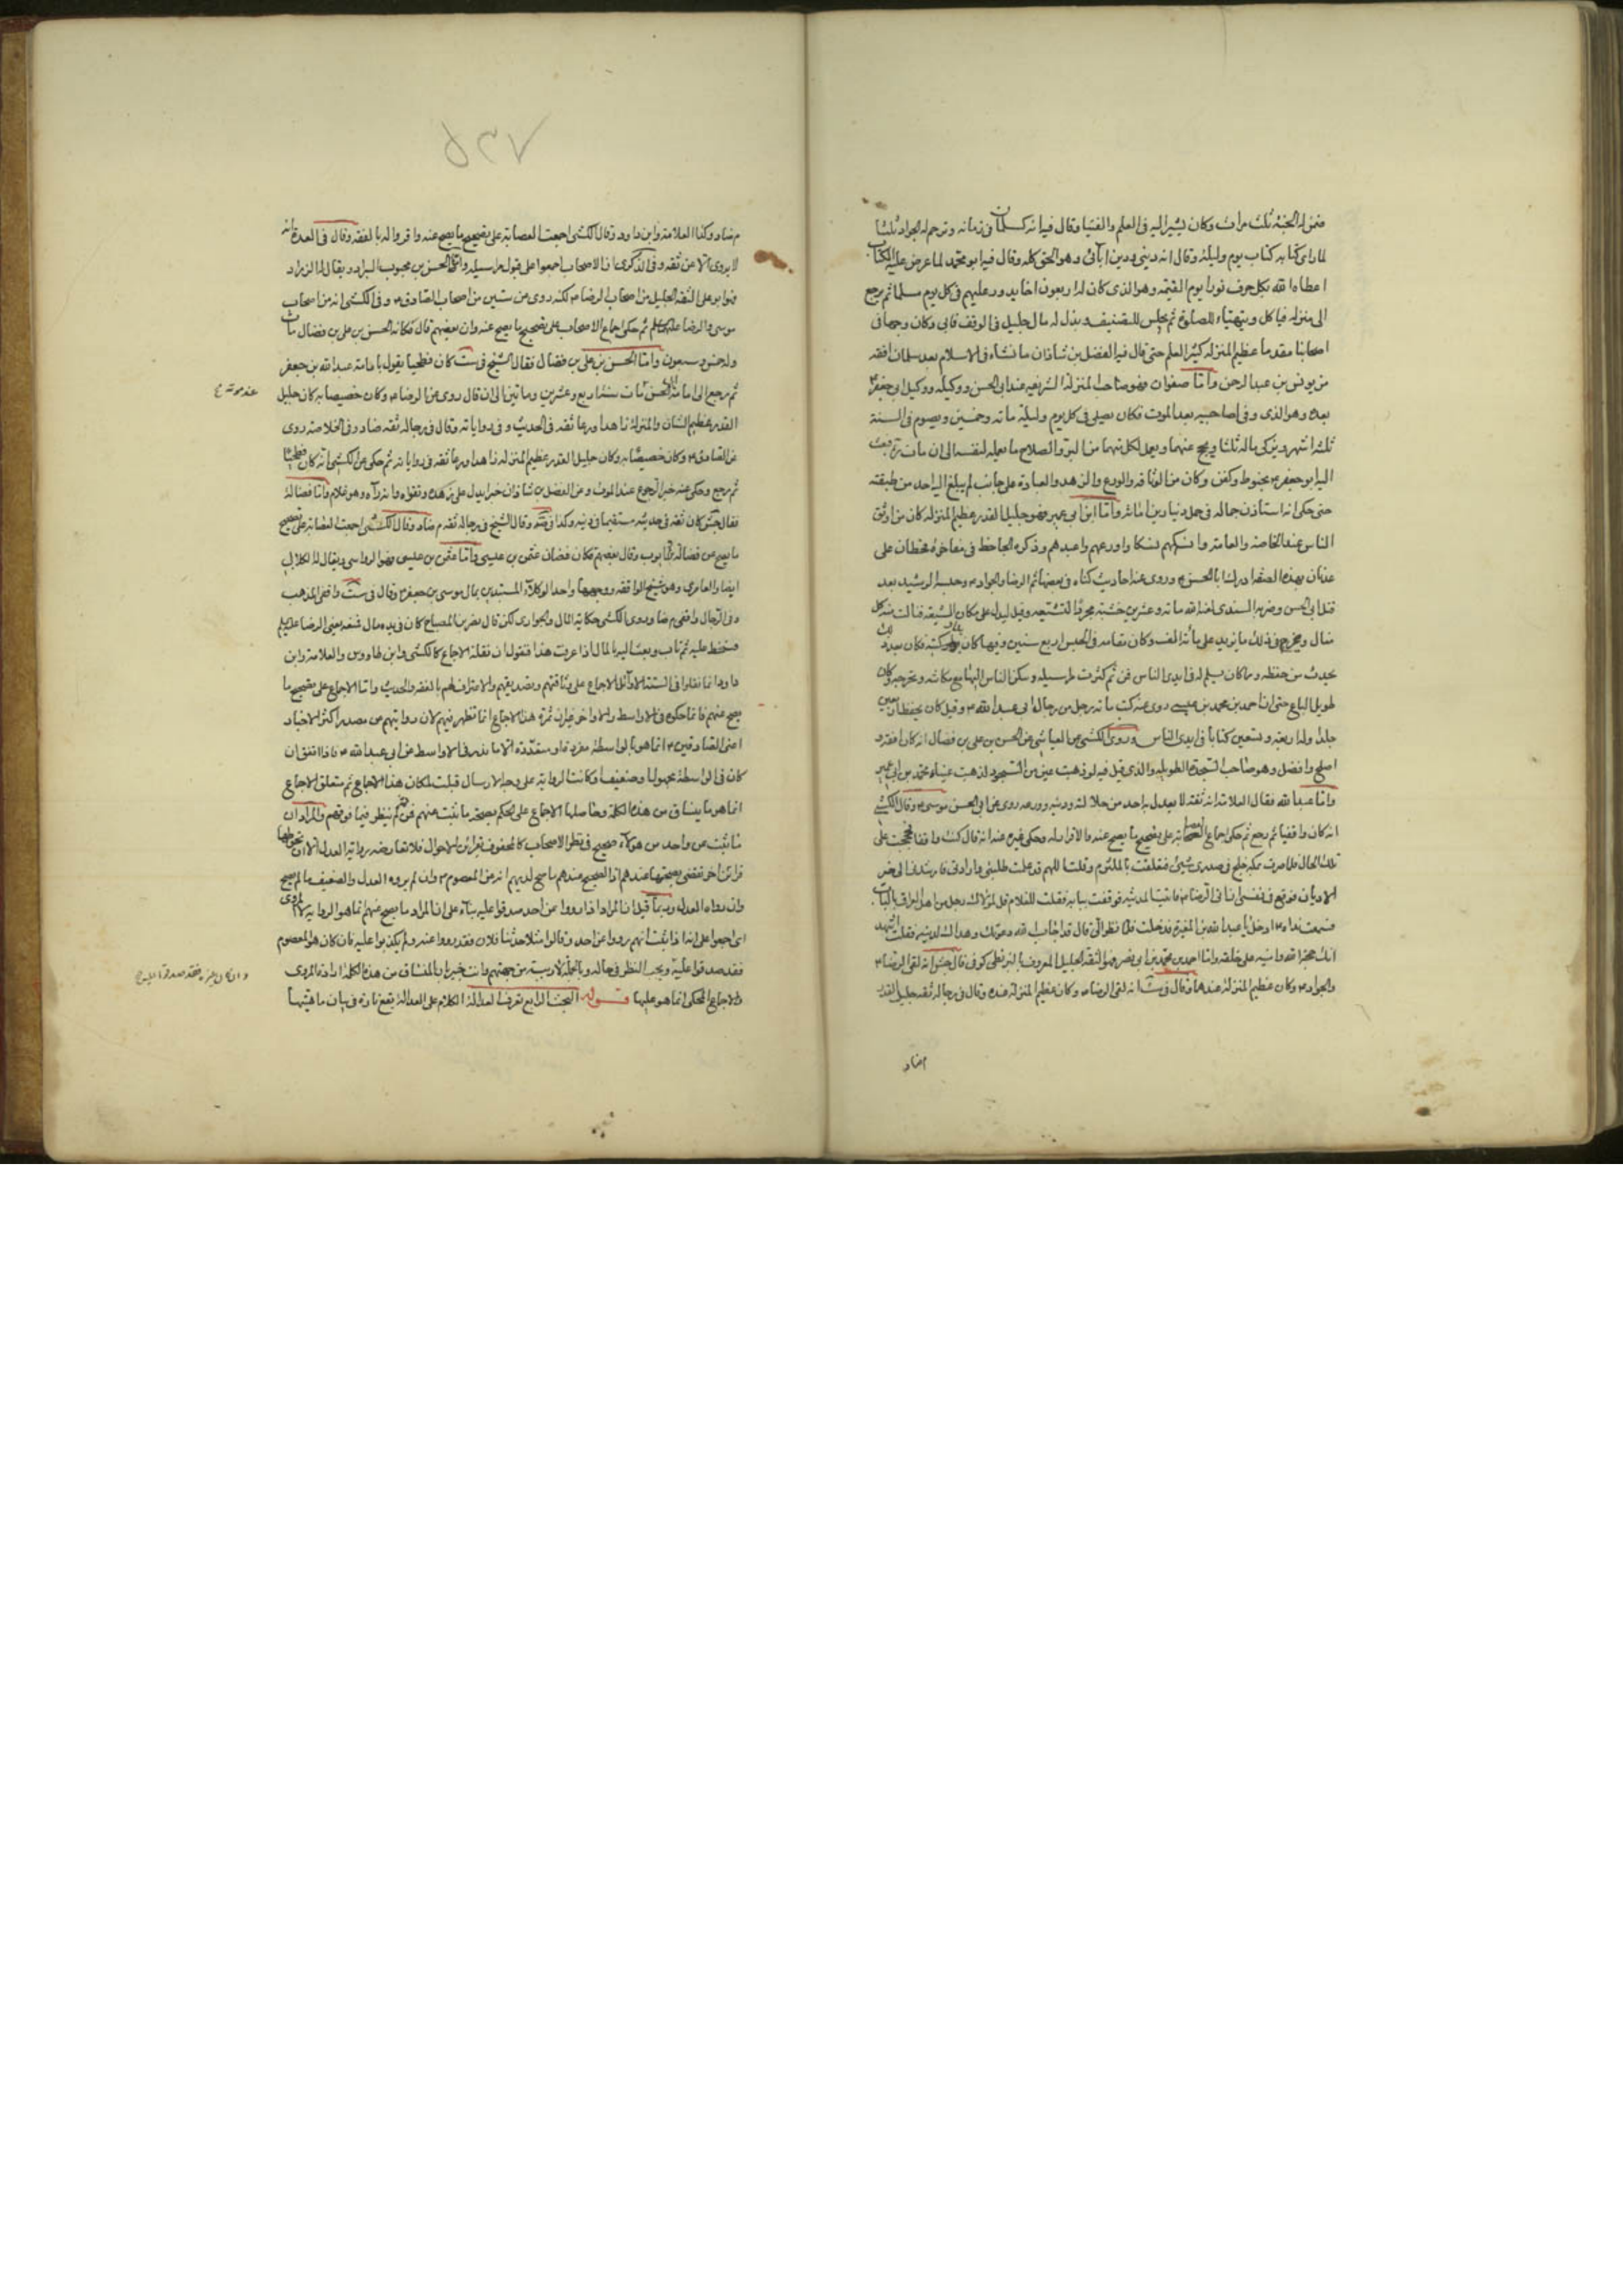 فضمن له الجنة ثلث مرات وكان يشير اليه في العلم والفتيا وقال فيه انه كسلمان في زمانه وترحم له الجواد ثلثا
لما رای كتابه كتاب يوم وليلة وقال انه ديني ودين آبائي وهو الحق كله وقال فيه ابو محمد لما عرض عليه الكتاب
اعطاه الله بكل حرف نورا يوم القيمة وهو الذي كان له اربعون اخا يدور عليهم في كل يوم مسلما ثم يرجع
الى منزله فياكل ويتهيأ للصلوة ثم يجلس للتصنيف وبذل له مال جليل في الوقف فابى وكان وجها في
اصحابنا مقدما عظيم المنزلة كثير العلم حتى قال فيه الفضل بن شاذان ما نشاء في الاسلام بعد سلمان افقه
من يونس بن عبد الرحمن واما صفوان فهو صاحب المنزلة الشريفة عند ابي الحسن ووكيله ووكيل ابي جعفر
بعده وهو الذي وفى لصاحبيه بعد الموت فكان يصلي في كل يوم وليلة مائة وخمسين ويصوم في السنة
ثلثة اشهر ويزكي ماله ثلثا ويحج عنهما ويعمل لكل منهما من البر والصلاح ما يعمله لنفسه الى ان مات بعث
اليه ابو جعفر بحنوط وكفن وكان من الوثاقة والورع والزهد والعبادة على جانب لم يبلغ اليه احد من طبقته
حتى حكى انه استأذن جماله في حمل دينارين امانة واما ابن ابي عمير فهو جليل القدر عظيم المنزلة كان من اوثق
الناس عند الخاصة والعامة وانسكهم نسكا واورعهم واعبدهم وذكره الجاحظ في مفاخرة قحطان على
عدنان بهذه الصفة ادرك ابا الحسن وروى عنه احاديث كناه في بعضها ثم الرضا والجواد وحبسه الرشيد بعد
قتل ابي الحسن وضربه السندي لعنه الله مائة وعشرين خشبة لتشيعه وقيل ليدل على مكان الشيعة
يحدث من حفظه وما كان سلم له في ايدي الناس فمن ثم كثرت مراسيله وسكن الناس اليها
طويل الباع حتى ان احمد بن محمد بن عيسى روى عنه كتب مائة رجل من رجال ابي عبد الله وقيل كان يحفظ اربعين
جلدا وله اربعة وتسعين كتابا في ايدي الناس وروى الكشي عن العياشي عن الحسن بن علي بن فضال انه كان افقه و
اصلح وافضل وهو صاحب السجدة الطويلة والذي قيل فيه لو ذهبت عين من السجود لذهبت عيناه محمد بن ابي عمير
واما عبد الله فقال العلامة انه ثقة لا يعدل به احد من جلالته ودينه وورعه روى عن ابي الحسن موسى وقال الكشي
انه كان واقفيا ثم رجع ثم حكى اجماع العصابة على تصحيح ما يصح عنه والاقرار له وحكى غيره عنه انه قال كنت واقفا فحججت على
تلك الحال فلما صرت بمكة خلج في صدري شيئ فتعلقت بالملتزم وقلت اللهم قد علمت طلبتي وارادتي فارشدني الى خير
الاديان فوقع في نفسي ان آتي الرضا فاتيت المدينة فوقفت ببابه فقلت للغلام قل لمولاك رجل من اهل العراق بالباب
فسمعت نداءه ادخل يا عبد الله بن المغيرة فدخلت فلما نظر الي قال قد اجاب الله دعوتك وهداك لدينه فقلت اشهد
انك حجة الله وامينه على خلقه واما احمد بن محمد بن ابي نصر فهو الثقة الجليل المعروف بالبزنطي كوفي قال جش انه لقى الرضا
والجواد وكان عظيم المنزلة عندهما وقال في ست انه لقى الرضا وكان عظيم المنزلة عنده وقال في رجاله ثقة جليل القدر
م ضاد
م ضاد وكذا العلامة وابن داود وقال الكشي اجمعت العصابة على تصحيح ما يصح عنه واقروا له بالفقه وقال في العدة انه
لا يروي الا عن ثقة وفي الذكرى ان الاصحاب اجمعوا على قبول مراسيله واما الحسن بن محبوب السراد ويقال له الزراد
فهو ابو علي الثقة الجليل من اصحاب الرضا لكنه روى عن ستين من اصحاب الصادق وفي الكشي انه من اصحاب
موسى والرضا ثم حكى اجماع الاصحاب على تصحيح ما يصح عنه وان بعضهم قال مكانه الحسن بن علي بن فضال مات
وله خمس وسبعون واما الحسن بن علي بن فضال فقال الشيخ في ست كان فطحيا يقول بامامة عبد الله بن جعفر
ثم رجع الى امامة ابي الحسن مات سنة اربع وعشرين ومائتين الى ان قال روى عن الرضا وكان خصيصا به كان جليل
عند موته
القدر عظيم الشان والمنزلة زاهدا ورعا ثقة في الحديث وفي رواياته وقال في رجاله ثقة ضاد وفي الخلاصة روى
عن الصادق وكان خصيصا به وكان جليل القدر عظيم المنزلة زاهدا ورعا ثقة في رواياته ثم حكى عن الكشي انه كان فطحيا
ثم رجع وحكى عنه خبر الرجوع عند الموت وعن الفضل بن شاذان خبرا يدل على زهده وتقواه وانه رآه وهو غلام واما فضالة
فقال جش كان ثقة في حديثه مستقيما في دينه وكذا في وقال الشيخ في رجاله ثقة م ضاد وقال الكشي اجمعت العصابة على تصحيح
ما يصح عن فضالة بن ايوب وقال بعضهم مكان فضالة عثمن بن عيسى واما عثمن بن عيسى فهو الرواسي ويقال له الكلابي
ايضا والعامري وهو شيخ الواقفة ووجهها واحد الوكلاء المستبدين بمال موسى بن جعفر وقال في ست واقفي المذهب
وفي الرجال واقفي م ضا وروى الكشي حكاية المال والجواري لكن قال نصر بن الصباح كان في يده مال فمنعه يعني الرضا
فسخط عليه ثم تاب وبعث اليه بالمال اذا عرفت هذا فنقول ان نقلة الاجماع كالكشي وابن طاووس والعلامة وابن
داود انما نقلوا في الستة الاوائل الاجماع على وثاقتهم وتصديقهم والاعتراف لهم بالفقه والحديث واما الاجماع على تصحيح ما
يصح عنهم فانما حكوه في الاواسط والاواخر غير ان ثمرة هذا الاجماع انما تظهر فيهم لان روايتهم عن مصدر اكثر الاخبار
اعني الصادقين انما هو بالواسطة مفردة او متعددة الا ما ندر في الاواسط عن ابي عبد الله فاذا اتفق ان
كان في الواسطة مجهولا وضعيفا وكانت الرواية على وجه الارسال قبلت لمكان هذا الاجماع ثم متعلق الاجماع
انما هو ما ينساق من هذه الكلمة وحاصلها الاجماع على الحكم بصحة ما ثبت عنهم فمن ثم لم ينظر فيما فوقهم والمراد ان
ما ثبت عن واحد من هؤلاء صحيح في نظر الاصحاب كالمحفوف بقرائن الاحوال فلا تعارضه رواية العدل الا ان تحوطها
قرائن اخر تقتضي بصحتها عندهم اذ الصحيح عندهم ما صح لديهم انه من المعصوم وان لم يروه العدل والضعيف ما لم يصح
وان رواه العدل وربما قيل ان المراد اذا رووا عن احد صدقوا عليه بناء على ان المراد ما يصح عنهم انما هو الرواية لا المروى
اي اجمعوا على انه اذا ثبت انهم رووا عن احد وقالوا مثلا حدثنا فلان فقد رووا عنه ولم يكذبوا عليه فان كان هو المعصوم
فقد صدقوا عليه ويجب النظر في حاله وبالجملة لا ريبة من جهتهم وانت خبير ان المنساق من هذه الكلمة ارادة المروى
والاجماع المحكي انما هو عليها قوله البحث الرابع تعريف العدالة الكلام على العدالة يقع تارة في بيان ماهيتها